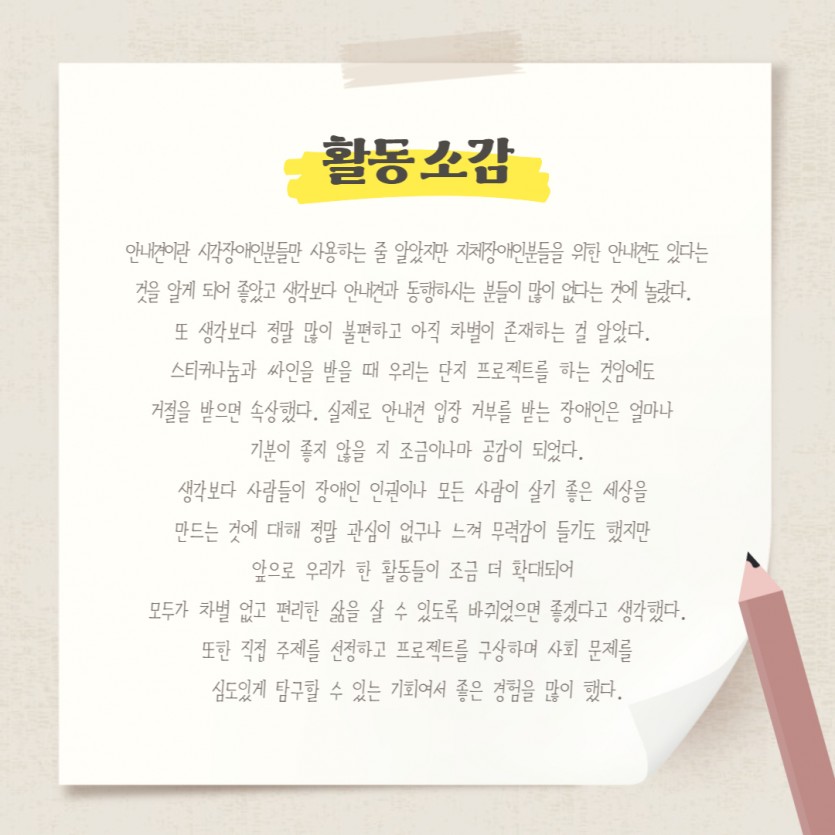 활동 소감
안내견이란 시각장애인분들만 사용하는 줄 알았지만 지체장애인분들을 위한 안내견도 있다는
것을 알게 되어 좋았고 생각보다 안내견과 동행하시는 분들이 많이 없다는 것에 놀랐다.
또 생각보다 정말 많이 불편하고 아직 차별이 존재하는 걸 알았다.
스티커나눔과 싸인을 받을 때 우리는 단지 프로젝트를 하는 것임에도
거절을 받으면 속상했다. 실제로 안내견 입장 거부를 받는 장애인은 얼마나
기분이 좋지 않을 지 조금이나마 공감이 되었다.
생각보다 사람들이 장애인 인권이나 모든 사람이 살기 좋은 세상을
만드는 것에 대해 정말 관심이 없구나 느껴 무력감이 들기도 했지만
앞으로 우리가 한 활동들이 조금 더 확대되어
모두가 차별 없고 편리한 삶을 살 수 있도록 바뀌었으면 좋겠다고 생각했다.
또한 직접 주제를 선정하고 프로젝트를 구상하며 사회 문제를
심도있게 탐구할 수 있는 기회여서 좋은 경험을 많이 했다.